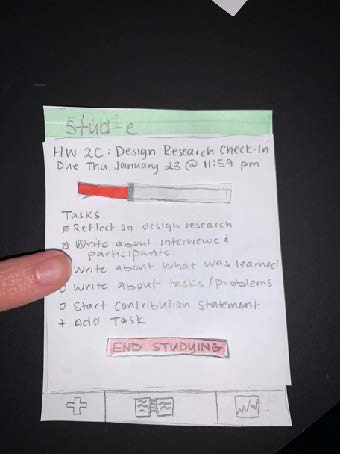 HW 2C: Design Research Check-In
Due Thu January 23 @ 11:59 pm
Tasks
Reflect on design research
Write about interviews &
participants
Write about what was learned
Write about tasks/problems
Start Contribution Statement
+ Add Task
END STUDYING